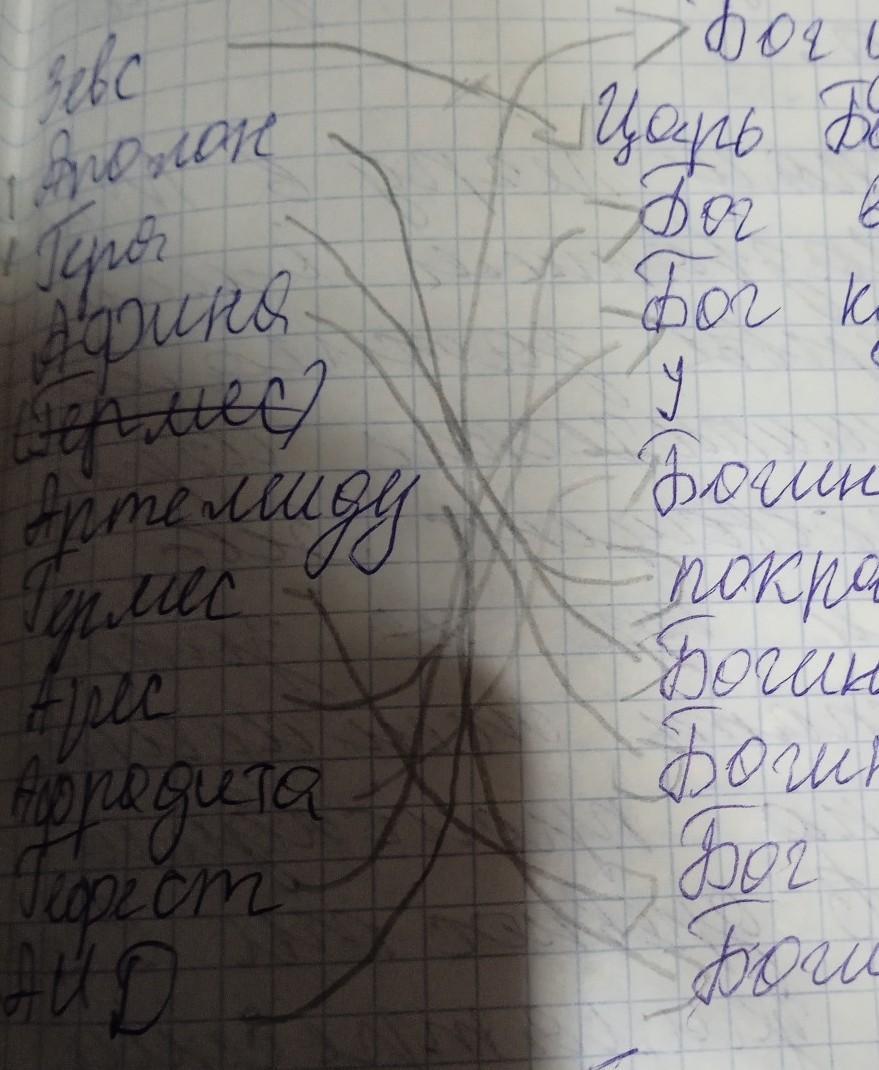 Зевс
Аполан
Гера
Афина
(Гермес)
Артемиду
Гермес
Арес
Афродита
Гефест
АИД
Бог
Царь
Бог в
Бог
у
Богин
покра
Богин
Богин
Бог
Боги